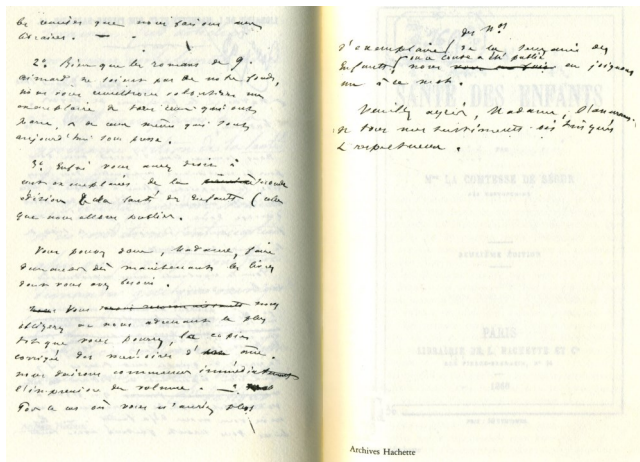 les remises que nous faisons aux
libraires. —
2º Bien que les romans de G.
Aimard ne soient pas de notre fonds,
nous vous remettrons volontiers un
exemplaire de tous ceux qui ont
paru, et de ceux même qui sont
aujourd'hui sous presse.
3º Enfin vous aurez droit à
exemplaires de la seconde
édition de la Santé des Enfants (celle
que nous allons publier.
Vous pouvez donc, Madame, faire
demander dès maintenant les livres
dont vous avez besoin.
Vous nous
obligerez en nous adressant le plus
tôt que vous pourrez, la copie
corrigée des mémoires d'un âne.
nous voulons commencer immédiatement
l'impression du volume. —
Pour le cas où vous n'auriez plus
des Nos
d'exemplaires de la Semaine des
Enfants, où ce conte a été publié
nous en joignons
un à ce mot.
Veuillez agréer, Madame, l'assurance
de tous nos sentiments distingués
et respectueux.
SANTÉ DES ENFANTS
PAR
Mme LA COMTESSE DE SÉGUR
NÉE ROSTOPCHINE
DEUXIÈME ÉDITION
PARIS
LIBRAIRIE DE L. HACHETTE ET Cie
Archives Hachette